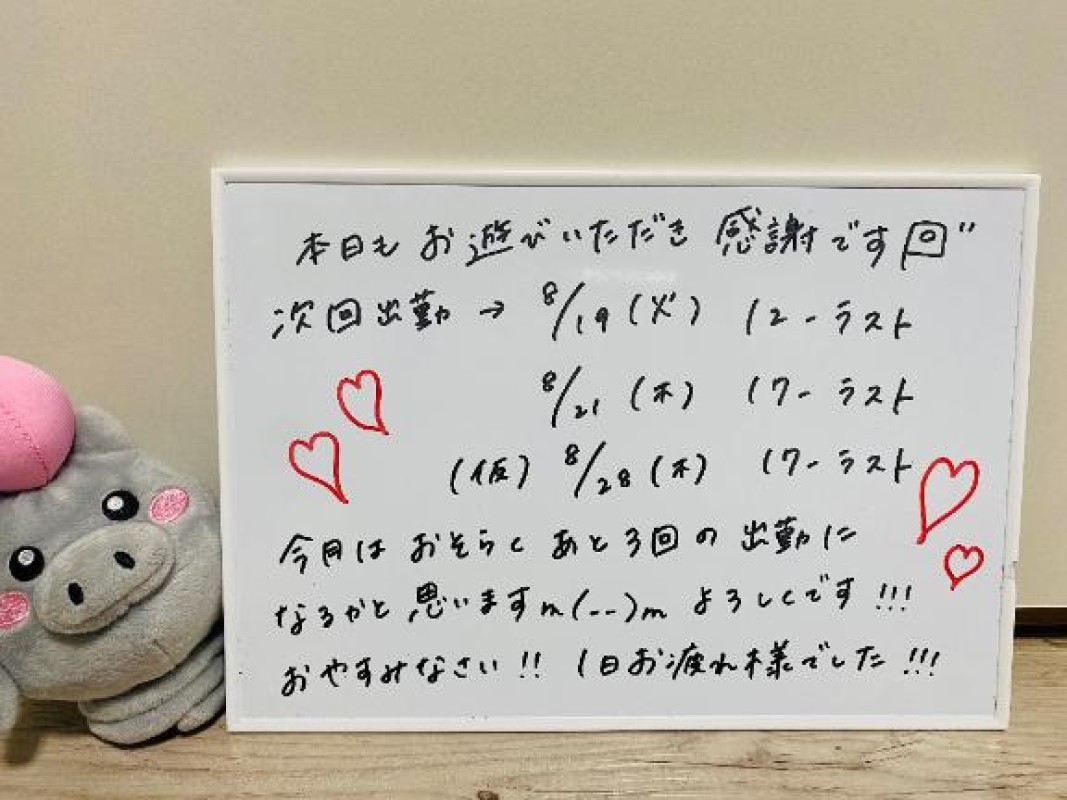 本日もお遊びいただき感謝です回"
次回出勤→ 8/19(火) 12-ラスト
8/21(木) 17-ラスト
(仮) 8/28(木) 17-ラスト
今月はおそらくあと3回の出勤に
なるかと思いますm(--)mよろしくです!!!
おやすみなさい!! 1日お疲れ様でした!!!